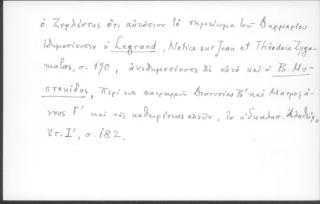 ὁ Ζερλέντης ὅτι αὐτόσιον τὸ σημείωμα τοῦ Δαρμαρίου
ἐδημοσίευσεν ὁ Legrand, Notice sur Jean et Théodose Zygo-
malas, σ. 190, ἀνεδημοσίευσε δὲ αὐτὸ καὶ ὁ Β. Μυ-
στακίδης, Περὶ τῶν πατριαρχῶν Διονυσίου Β' καὶ Μητροφά-
νους Γ' καὶ τῆς καθαιρέσεως αὐτῶν, ἐν ἐκκλησ. Ἀληθείᾳ,
ἔτ. Ι', σ. 182.